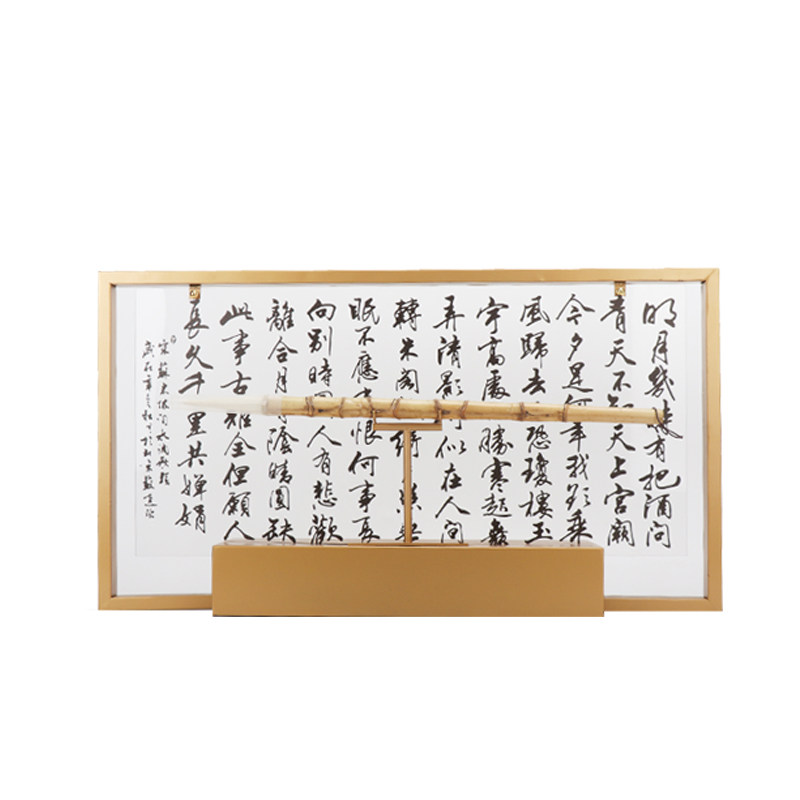 明月幾時有把酒問
青天不知天上宮闕
今夕是何年我欲乘
風歸去恐瓊樓玉
宇高處勝寒起舞
弄清影何似在人間
轉朱閣綺無
眠不應有恨何事長
向別時圓人有悲歡
離合月有陰晴圓缺
此事古難全但願人
長久千里共嬋娟
宋蘇東坡詞水調歌頭
歲在